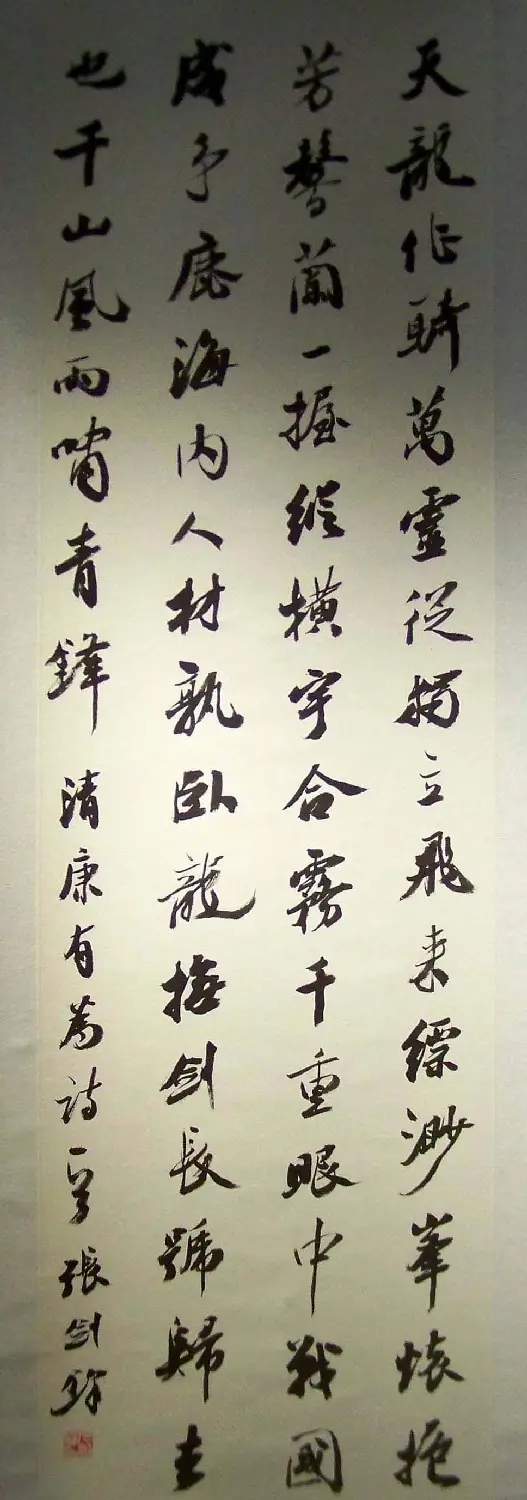 天龍作騎萬靈從獨立飛来縹渺峯懷抱
芳馨蘭一握縱橫宇合霧千重眼中戰國
成爭鹿海內人材孰臥龍撫劍長號歸去
也千山風雨嘯青鋒 清康有為詩一首 張劍